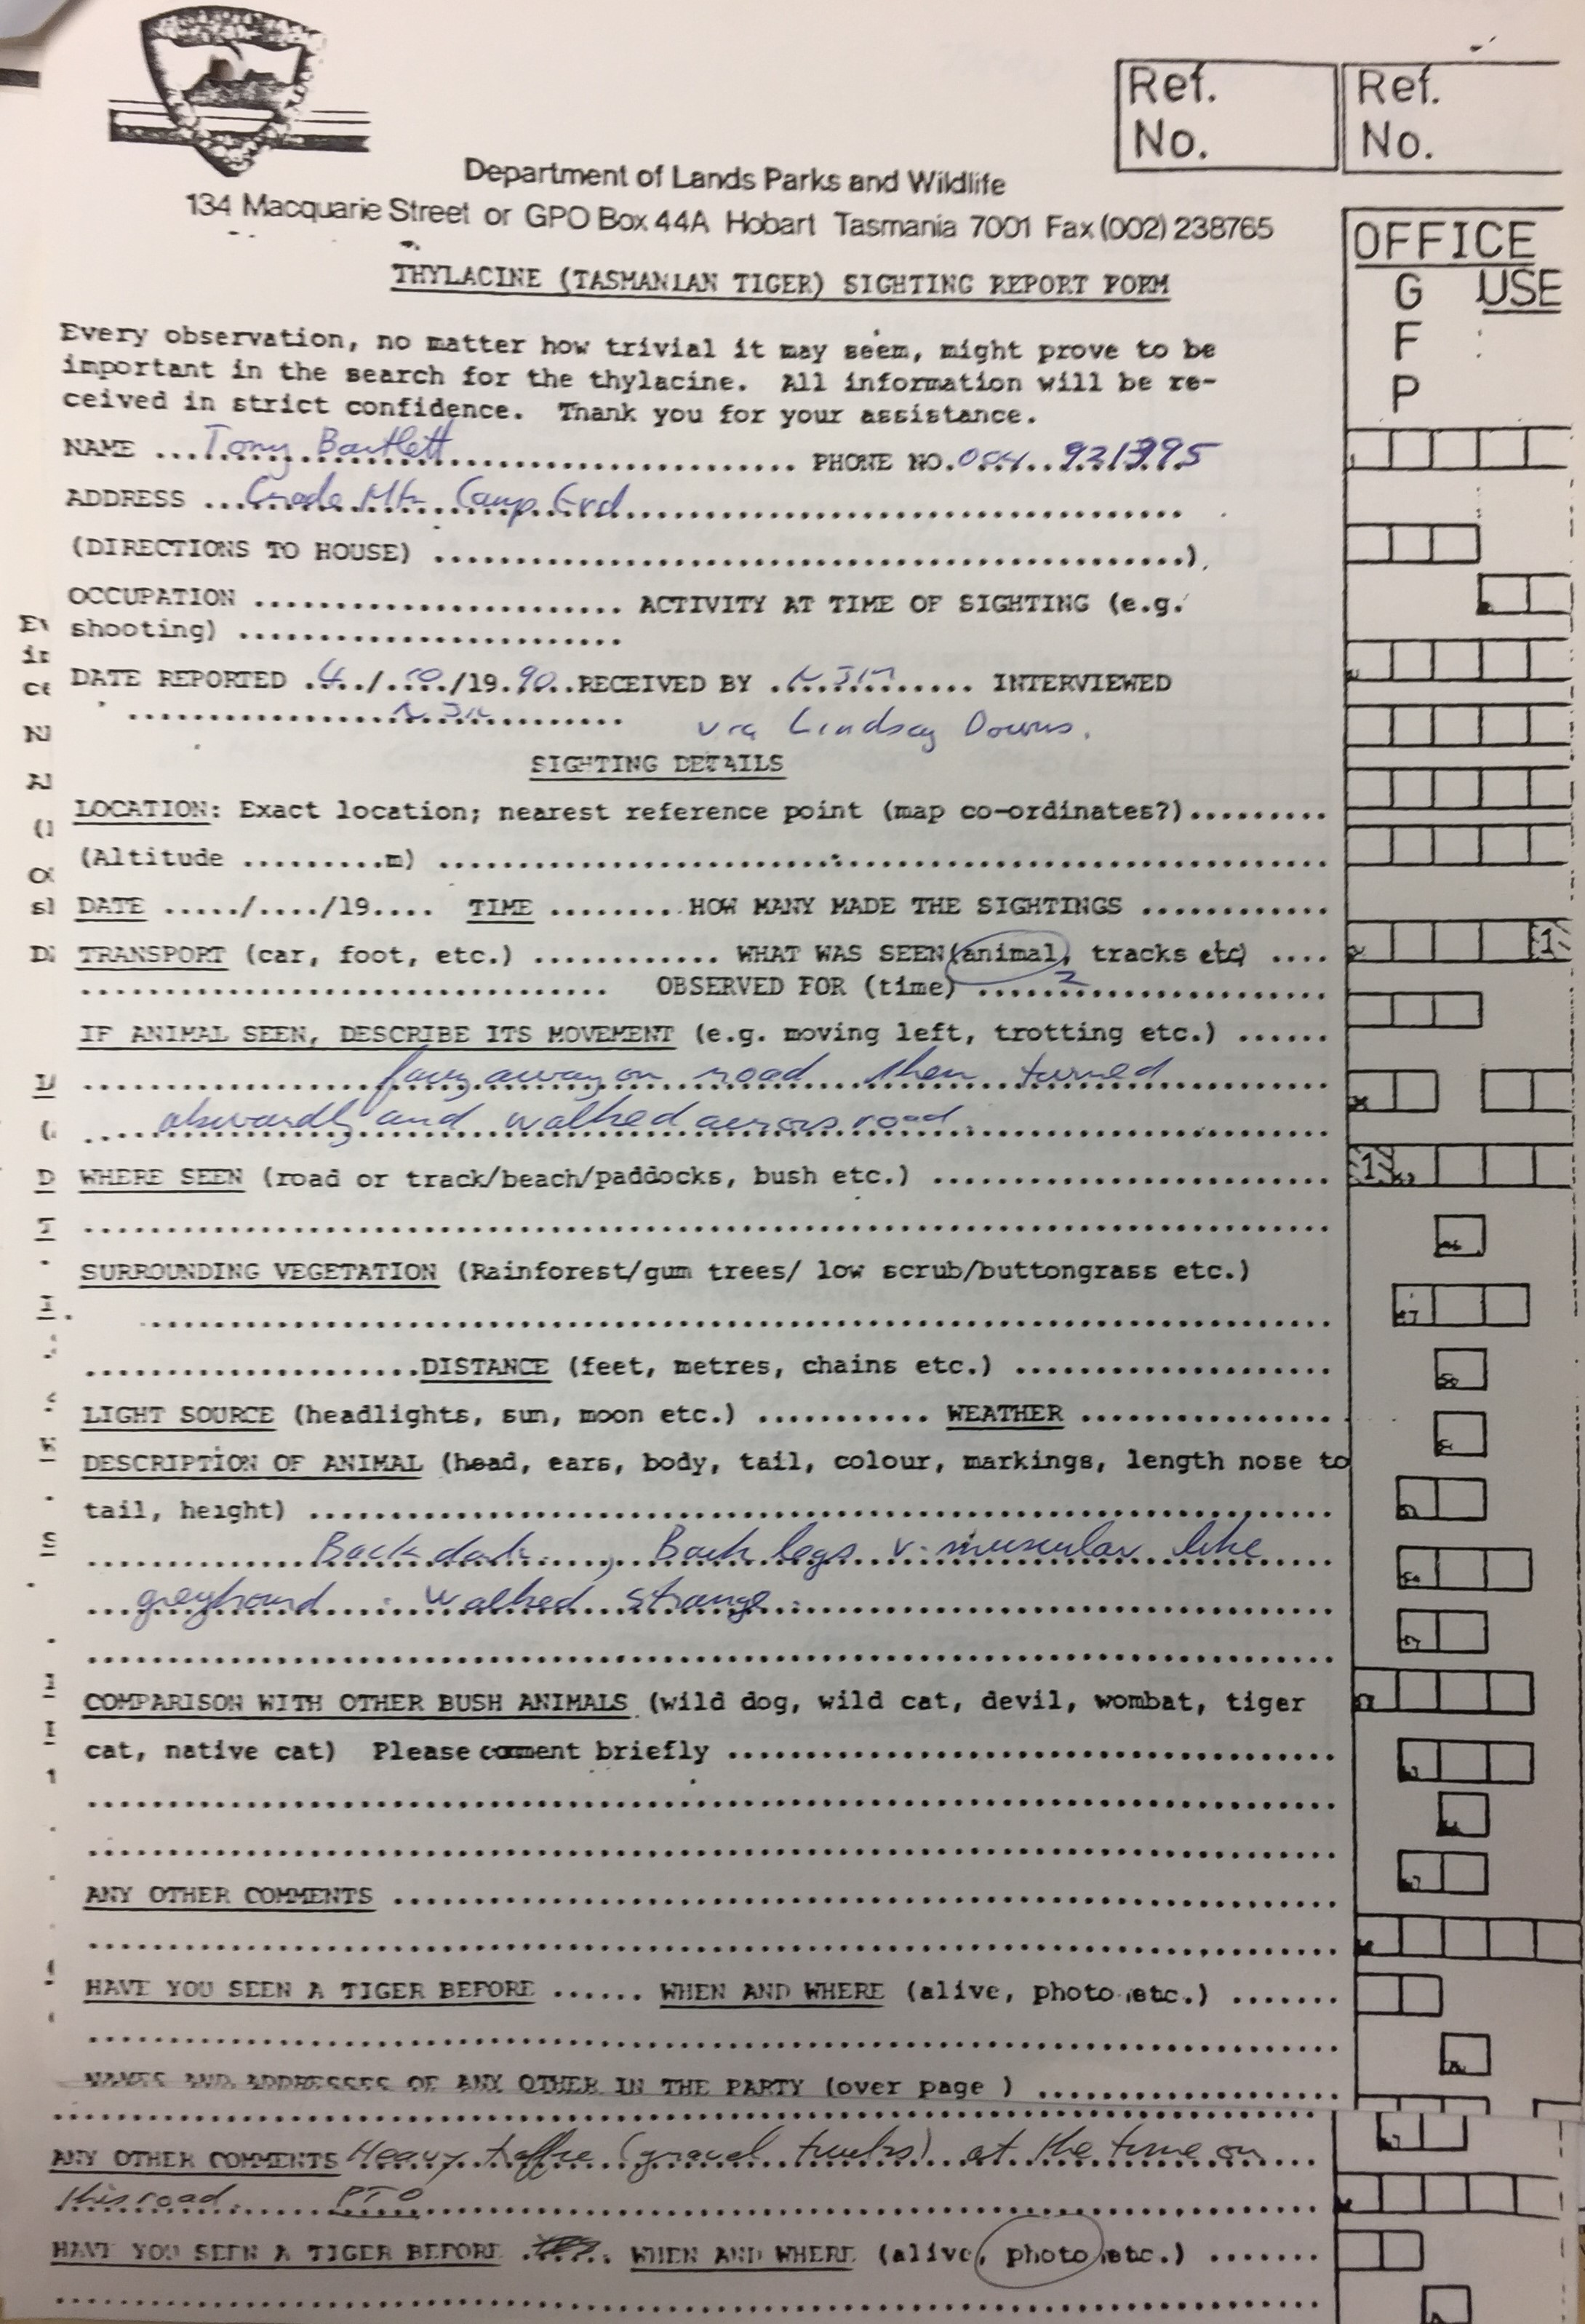 Ref.
No.
Ref.
No.
Department of Lands Parks and Wildlife
134 Macquarie Street or GPO Box 44A Hobart Tasmania 7001 Fax (002) 238765
OFFICE
USE
G
F
P
THYLACINE (TASMANIAN TIGER) SIGHTING REPORT FORM
Every observation, no matter how trivial it may seem, might prove to be
important in the search for the thylacine. All information will be re-
ceived in strict confidence. Thank you for your assistance.
NAME ... Tony Bartlett ... PHONE NO. 004 921395
ADDRESS ... Cradle Mtn Camp Grd
(DIRECTIONS TO HOUSE) ...)
OCCUPATION ... ACTIVITY AT TIME OF SIGHTING (e.g.
shooting) ...
DATE REPORTED 4/10/1990 RECEIVED BY ... INTERVIEWED
via Lindsay Downs.
SIGHTING DETAILS
LOCATION: Exact location; nearest reference point (map co-ordinates?)...
(Altitude .........m) ...
DATE ...../..../19.... TIME ......... HOW MANY MADE THE SIGHTINGS ...
TRANSPORT (car, foot, etc.) ............ WHAT WAS SEEN (animal, tracks etc) ....
OBSERVED FOR (time) ... 2
1
IF ANIMAL SEEN, DESCRIBE ITS MOVEMENT (e.g. moving left, trotting etc.) ......
away on road then turned
and walked across road.
WHERE SEEN (road or track/beach/paddocks, bush etc.) ...
1
SURROUNDING VEGETATION (Rainforest/gum trees/ low scrub/buttongrass etc.)
DISTANCE (feet, metres, chains etc.) ...
LIGHT SOURCE (headlights, sun, moon etc.) ........... WEATHER ...
DESCRIPTION OF ANIMAL (head, ears, body, tail, colour, markings, length nose to
tail, height) ...
Back dark, Back legs v. muscular like
greyhound. walked strange.
COMPARISON WITH OTHER BUSH ANIMALS (wild dog, wild cat, devil, wombat, tiger
cat, native cat) Please comment briefly ...
ANY OTHER COMMENTS ...
HAVE YOU SEEN A TIGER BEFORE ...... WHEN AND WHERE (alive, photo etc.) .......
NAMES AND ADDRESSES OF ANY OTHER IN THE PARTY (over page ) ...
ANY OTHER COMMENTS Heavy traffic (gravel trucks) at the time on
this road. PTO
HAVE YOU SEEN A TIGER BEFORE ...... WHEN AND WHERE (alive, photo etc.) .......